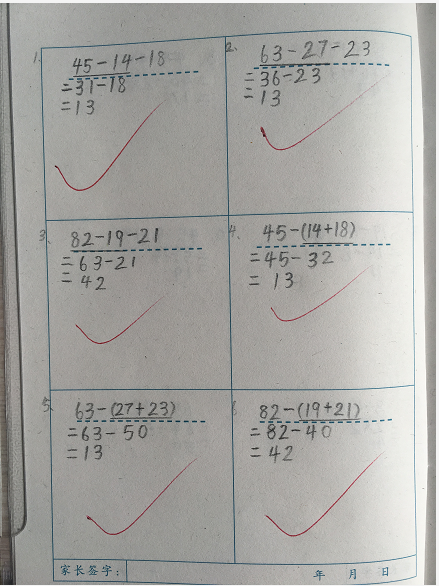 1. 45-14-18
=31-18
=13
2. 63-27-23
=36-23
=13
3. 82-19-21
=63-21
=42
4. 45-(14+18)
=45-32
= 13
5. 63-(27+23)
=63-50
=13
6. 82-(19+21)
=82-40
=42
家长签字：
年 月 日